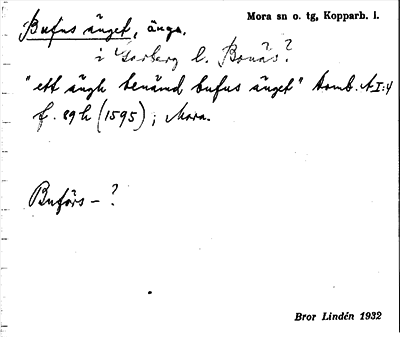 Mora sn o. tg, Kopparb. l.
Bufus änget, änge.
i Garberg l. Bonäs?
"ett ängh benämd bufus änget" Domb. A I:4
f. 89 h (1595); Mora.
Buförs - ?
Bror Lindén 1932